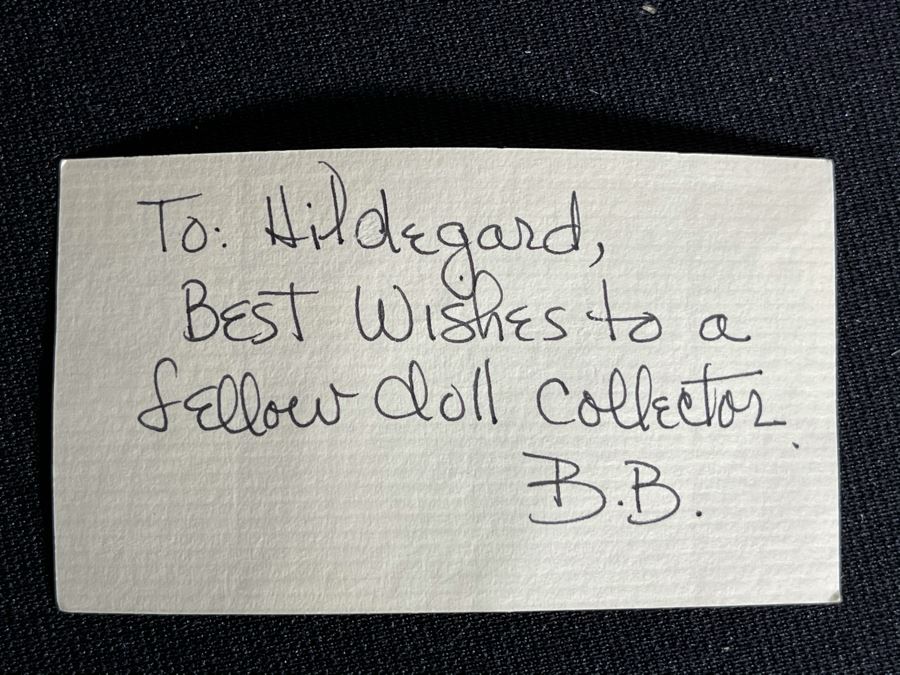 To: Hildegard,
Best Wishes to a
fellow doll collector.
B.B.